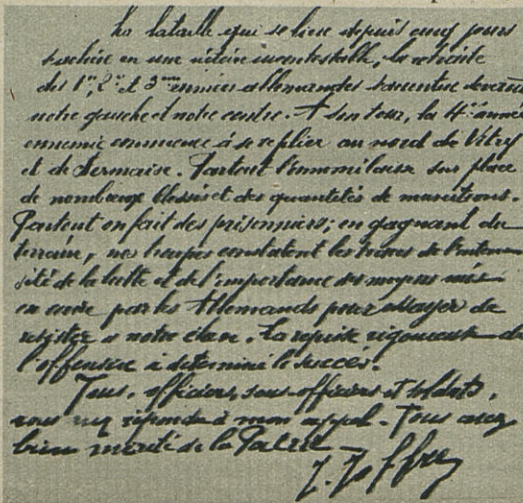 La bataille qui se livre depuis cinq jours
s'achève en une victoire incontestable, la retraite
des 1re, 2e et 3me armées allemandes s'accentue devant
notre gauche et notre centre. A son tour, la 4e armée
ennemie commence à se replier au nord de Vitry
et de Sermaise. Partout l'ennemi laisse sur place
de nombreux blessés et des quantités de munitions.
Partout on fait des prisonniers; en gagnant du
terrain, nos troupes constatent les traces de l'inten-
sité de la lutte et de l'importance des moyens mis
en œuvre par les Allemands pour essayer de
résister à notre élan. La reprise vigoureuse de
l'offensive a déterminé le succès.
Tous, officiers, sous-officiers et soldats,
vous avez répondu à mon appel. Tous avez
bien mérité de la Patrie
J. Joffre